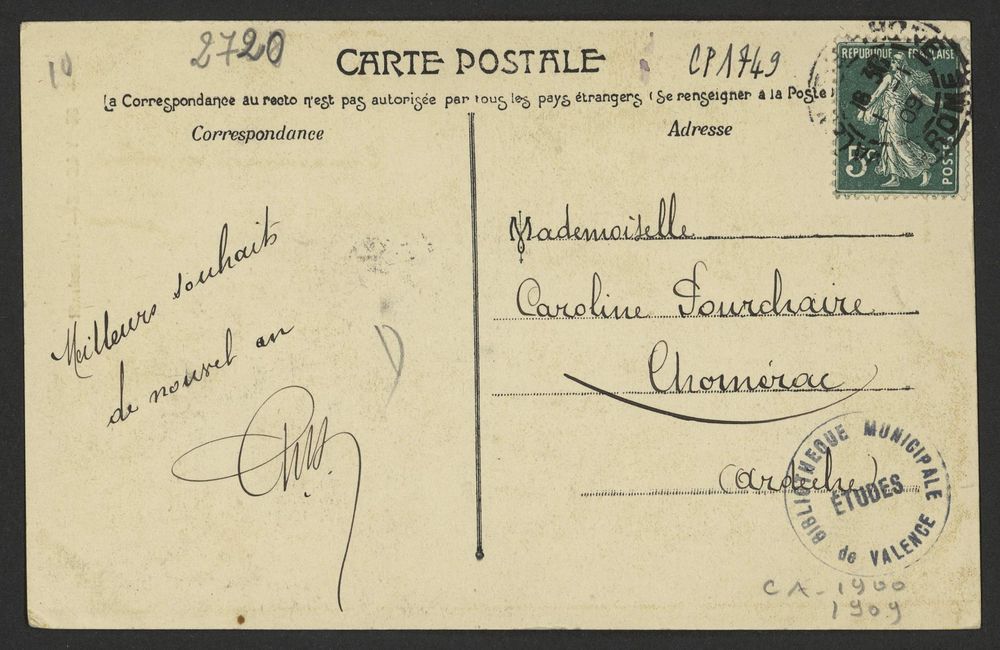 10
2720
CARTE POSTALE
CP1749
La Correspondance au recto n'est pas autorisée par tous les pays étrangers (Se renseigner à la Poste)
Correspondance
Adresse
REPUBLIQUE FRANÇAISE
5c
POSTES
DROME
Meilleurs souhaits
de nouvel an
Mademoiselle
Caroline Fourchaire
Chomérac
(Ardèche)
BIBLIOTHEQUE MUNICIPALE
ÉTUDES
de VALENCE
CA-1900
1909